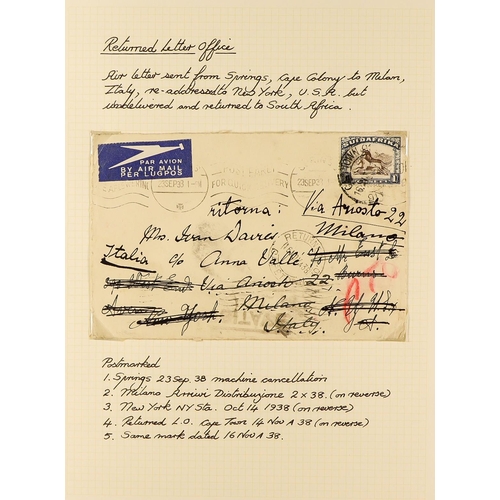 Returned Letter Office
Air letter sent from Springs, Cape Colony to Milan,
Italy, re-addressed to New York, U.S.A. but
undelivered and returned to South Africa.
PAR AVION
BY AIR MAIL
PER LUGPOS
23SEP38 1-PM
SUIDAFRIKA
ritorna: Via Ariosto 22
Milano
Mrs. Ivan Davies
Italia c/o Anna Valle
Via Ariosto 22,
Milano
New York.
Italy.
Postmarked
1. Springs 23 Sep. 38 machine cancellation
2. Milano Arrivi Distribuzione 2 x 38. (on reverse)
3. New York NY Sta. Oct 14 1938 (on reverse)
4. Returned L.O. Cape Town 14 Nov A 38 (on reverse)
5. Same mark dated 16 Nov A 38.